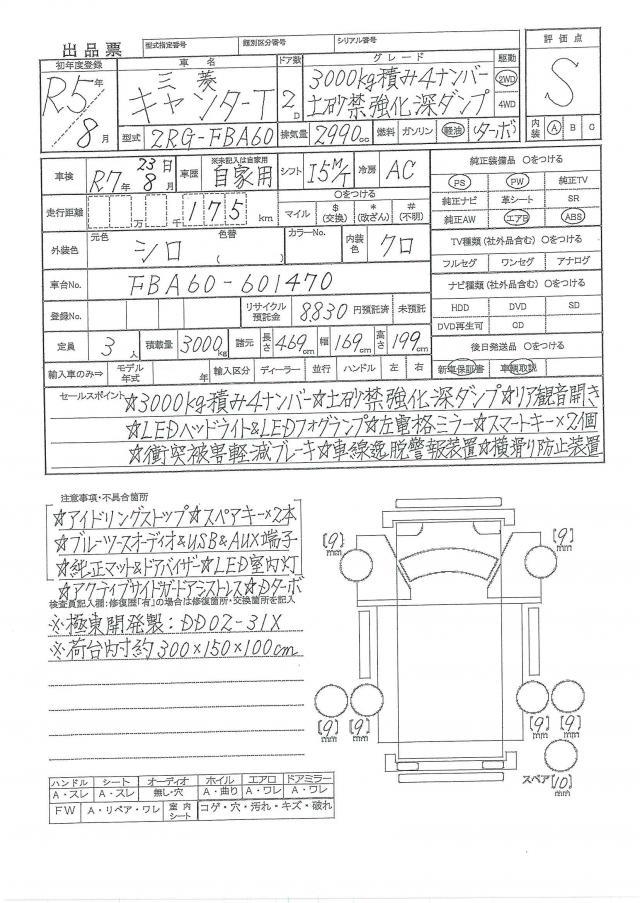 出品票 型式指定番号 類別区分番号 シリアル番号
初年度登録 車名 ドア数 グレード 駆動 評価点
R5年 8月 三菱 キャンターT 2D 3000kg積み4ナンバー 土砂禁強化深ダンプ 2WD 4WD S
型式 2RG-FBA60 排気量 2990cc 燃料 ガソリン 軽油 (ターボ) 内装 A B C
車検 R7年 23日 8月 車歴 ※未記入は自家用 自家用 シフト I5M/T 冷房 AC 純正装備品 ○をつける
PS PW 純正TV
走行距離 万 千 175 km ○をつける マイル $(交換) *(改ざん) #(不明) 純正ナビ 革シート SR
純正AW エアB ABS
外装色 元色 シロ 色替 ( ) カラーNo. 内装色 クロ TV種類(社外品含む) ○をつける
フルセグ ワンセグ アナログ
車台No. FBA60-601470 ナビ種類(社外品含む) ○をつける
登録No. リサイクル預託金 8,830 円預託済 未預託 HDD DVD SD
DVD再生可 CD
定員 3人 積載量 3000kg 諸元 長さ 469cm 幅 169cm 高さ 199cm 後日発送品 ○をつける
輸入車のみ⇒ モデル年式 年 輸入区分 ディーラー 並行 ハンドル 左 右 新車保証書 車輌取説
セールスポイント ☆3000kg積み4ナンバー☆土砂禁強化深ダンプ☆リア観音開き
☆LEDヘッドライト&LEDフォグランプ☆左電格ミラー☆スマートキー×2個
☆衝突被害軽減ブレーキ☆車線逸脱警報装置☆横滑り防止装置
注意事項・不具合箇所
☆アイドリングストップ☆スペアキー×2本
☆ブルーツースオーディオ&USB&AUX端子
☆純正マット&ドアバイザー☆LED室内灯
☆アクティブサイドガードアシストレス☆Dターボ
検査員記入欄:修復歴「有」の場合は修復箇所・交換箇所を記入
※極東開発製:DD02-31X
※荷台内寸約300×150×100cm
[9]mm [9]mm
[9]mm [9]mm [9]mm [9]mm
スペア [10]mm
ハンドル シート オーディオ ホイル エアロ ドアミラー
A・スレ A・スレ 無し・穴 A・曲り A・ワレ A・ワレ
FW A・リペア・ワレ 室内シート コゲ・穴・汚れ・キズ・破れ